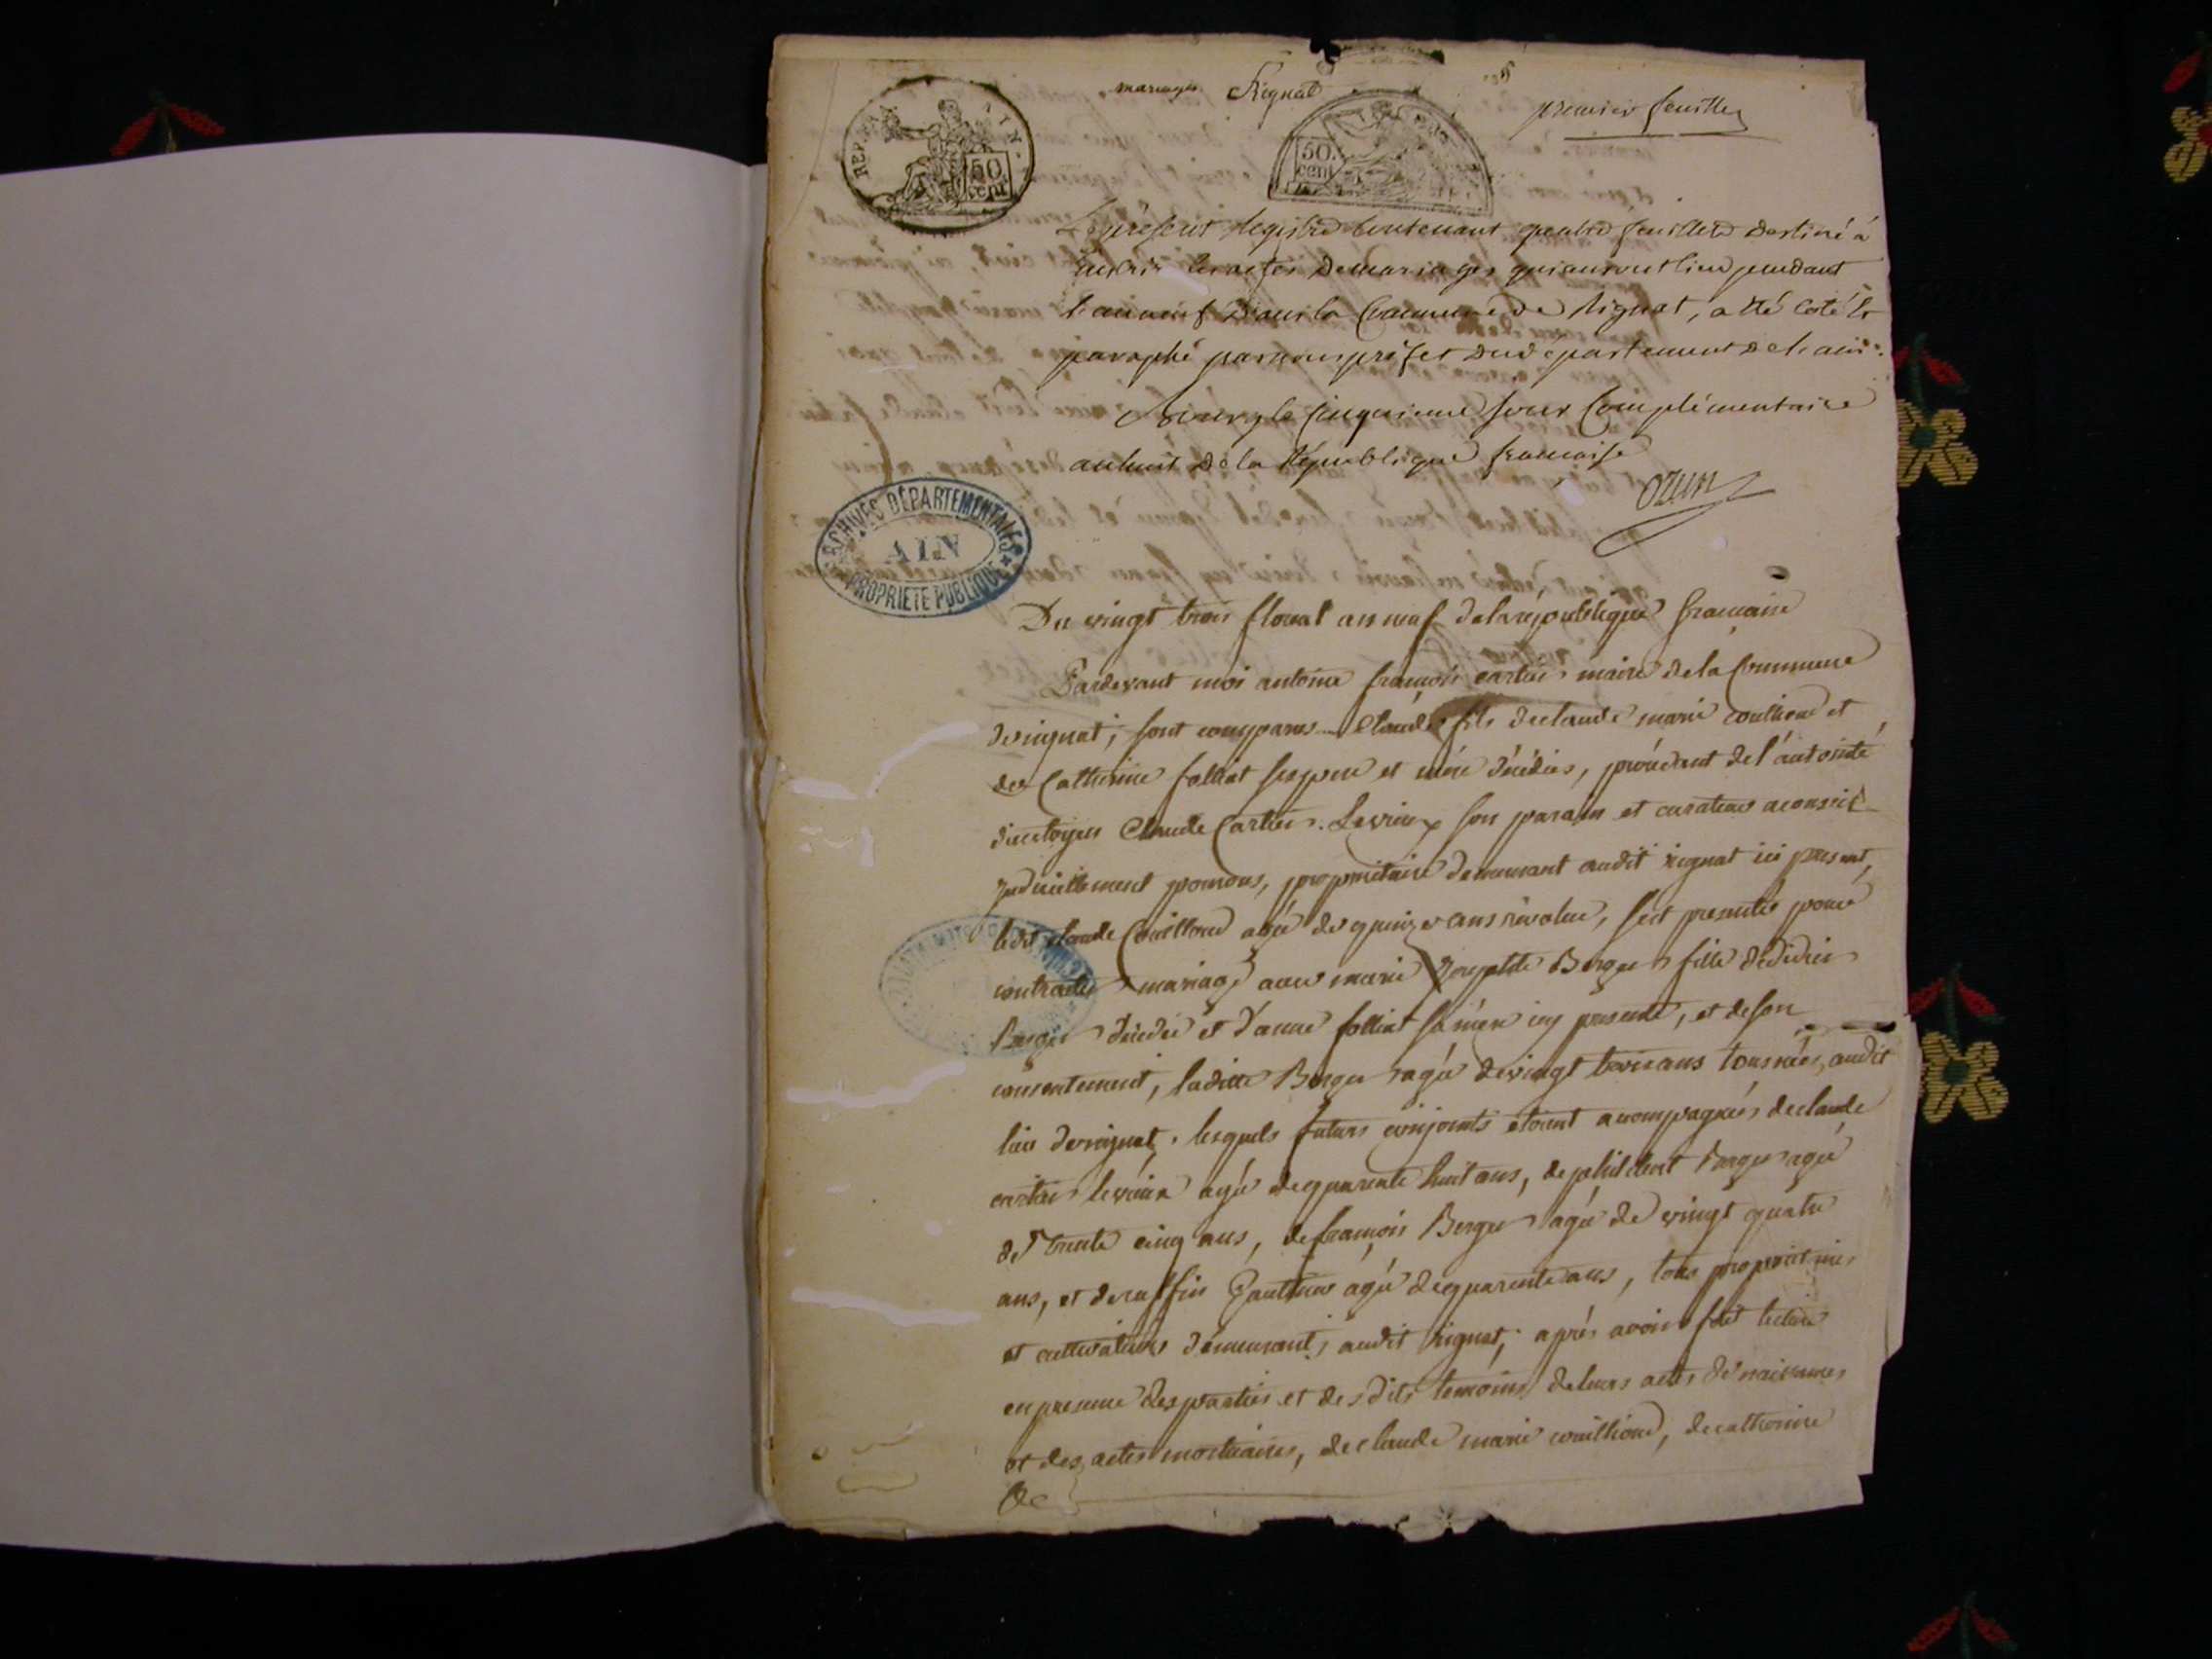 mariages Rignat
premier feuillet
REP. FRA. 50 cent
AIN.
50 cent
Le présent Registre Contenant quatre feuillets destiné à
inscrire les actes de mariages qui auront lieu pendant
l'an neuf dans la Commune de Rignat, a été coté &
paraphé par nous préfet du département de l'ain.
Bourg le cinquieme jour Complémentaire
an huit de la République française
ozun
ARCHIVES DÉPARTEMENTALES
AIN
PROPRIÉTÉ PUBLIQUE
Du vingt trois floreal an neuf de la republique francaise
Pardevant moi antoine françois cartier maire de la Commune
de rignat, sont comparus Claude fils de claude marie couilloud et
de Catherine folliat ses pere et mère décédés, procédant de l'autorité
du citoyen Claude Cartier Levieux son parain et curateur
judiciellement, propriétaire demeurant audit rignat ici present,
ledit claude Couilloud agé de quinze ans révolus, s'est presenté pour
contracter mariage avec marie Berger fille de didier
Berger décédé et d'anne folliat sa mère icy présente, et de son
consentement, laditte Berger agée de vingt trois ans tous nés, audit
lieu de rignat, lesquels futurs conjoints etoient acompagnés de claude
cartier levieux agé de quarante huit ans, de philibert Berger agé
de trente cinq ans, de françois Berger agé de vingt quatre
ans, et de ruffin Gauthier agé de quarante ans, tous propriétaires
et cultivateurs demeurants audit Rignat; après avoir fait lecture
en presence des parties et desdits temoins de leurs actes de naissances
et des actes mortuaires, de claude marie couilloud, de catherine